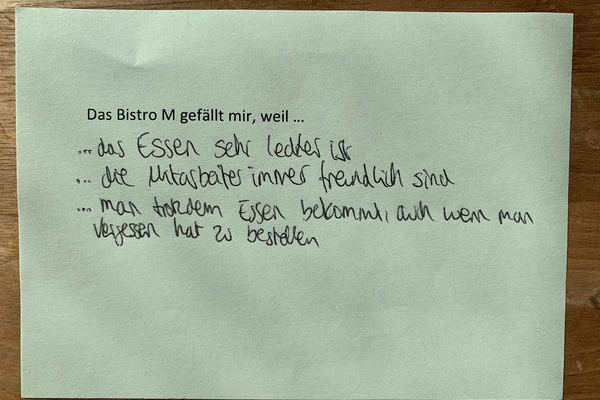 Das Bistro M gefällt mir, weil ...
... das Essen sehr lecker ist
... die Mitarbeiter immer freundlich sind
... man trotzdem Essen bekommt, auch wenn man
vergessen hat zu bestellen